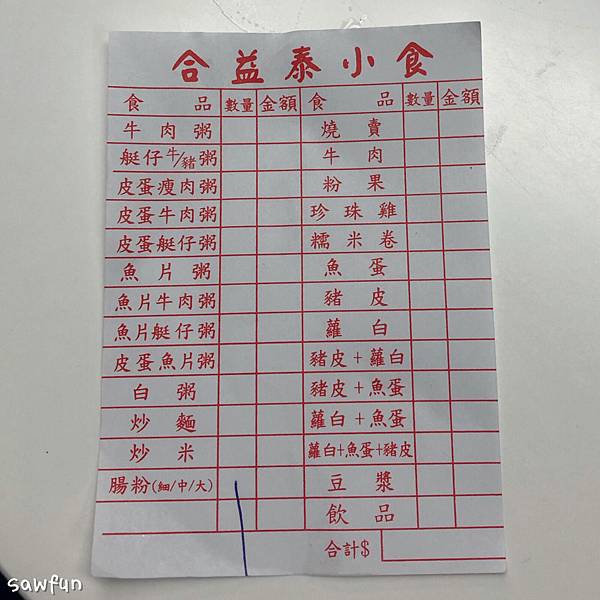 合益泰小食
食品 數量 金額 食品 數量 金額
牛肉粥 燒賣
艇仔牛/豬粥 牛肉
皮蛋瘦肉粥 粉果
皮蛋牛肉粥 珍珠雞
皮蛋艇仔粥 糯米卷
魚片粥 魚蛋
魚片牛肉粥 豬皮
魚片艇仔粥 蘿白
皮蛋魚片粥 豬皮+蘿白
白粥 豬皮+魚蛋
炒麵 蘿白+魚蛋
炒米 蘿白+魚蛋+豬皮
腸粉(細/中/大) 豆漿
飲品
合計$
sawfun